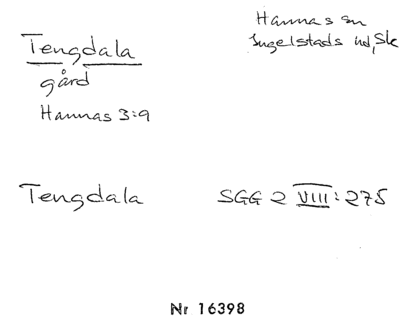 Tengdala
gård
Hannas 3:9
Hannas sn
Ingelstads hd, Sk
Tengdala
SGG 2 VIII: 275
Nr 16398